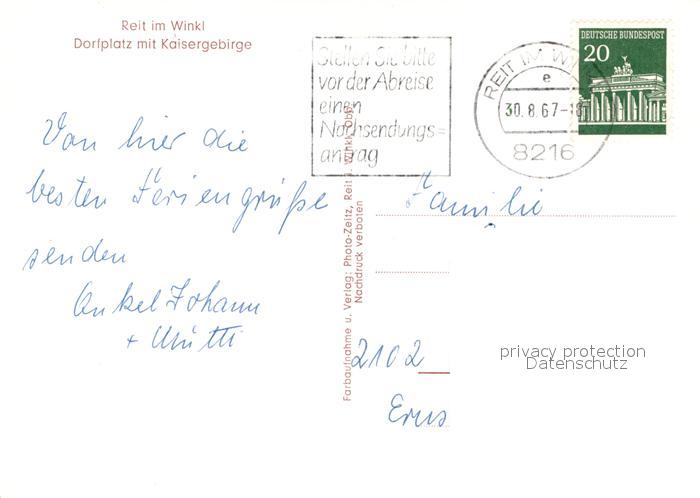 Reit im Winkl
Dorfplatz mit Kaisergebirge
Stellen Sie bitte
vor der Abreise
einen
Nachsendungs=
antrag
REIT IM WI
e
30.8.67-18
8216
DEUTSCHE BUNDESPOST
20
Von hier die
besten Feriengrüße
senden
Onkel Johann
+ Mutti
Farbaufnahme u. Verlag: Photo-Zeitz, Reit i. Winkl, Obb.
Nachdruck verboten
Familie
2102
privacy protection
Datenschutz